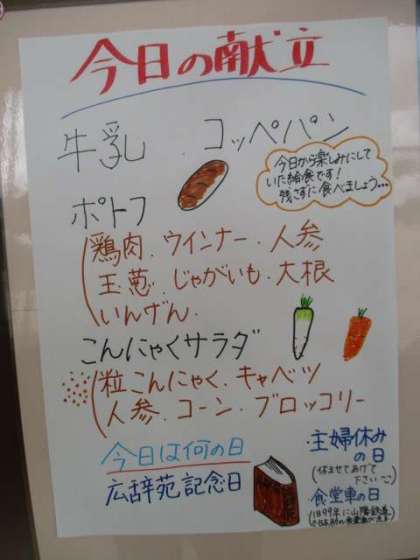 今日の献立
牛乳 . コッペパン
今日から楽しみにして
いた給食です!
残さずに食べましょう…
ポトフ
鶏肉. ウインナー. 人参
玉葱. じゃがいも. 大根
いんげん.
こんにゃくサラダ
粒こんにゃく. キャベツ
人参. コーン. ブロッコリー
今日は何の日
広辞苑記念日
・主婦休み
の日
(休ませてあげて
下さい
食堂車の日
(1899年に山陽鉄道